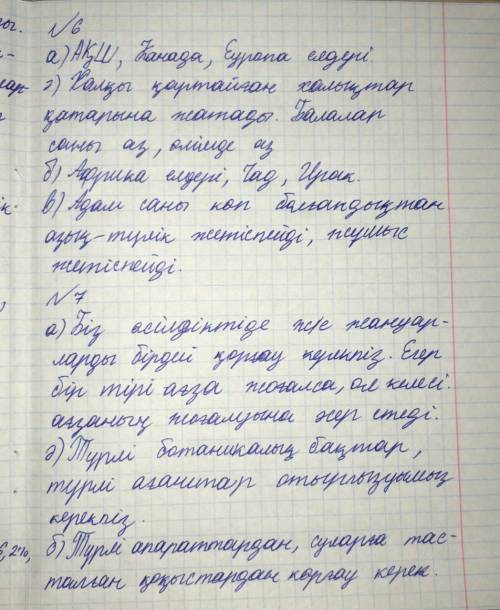 №6
а) АҚШ, Канада, Еуропа елдері
ә) Халқы қартайған халықтар
қатарына жатады. Балалар
саны аз, өлімде аз
б) Африка елдері, Чад, Ирак.
в) Адам саны көп болғандықтан
азық-түлік жетіспейді, жұмыс
жетіспейді.
№7
а) Біз өсілдіктіде ж/е жануар-
ларды бірдей қорғау керекпіз. Егер
бір тірі ағза жоғалса, ол келесі
ағзаның жоғалуына әсер етеді.
ә) Түрлі ботаникалық бақтар,
түрлі ағаштар отырғызуымыз
керекпіз.
б) Түрлі апараттардан, суларға тас-
талған қоқыстардан қорғау керек.